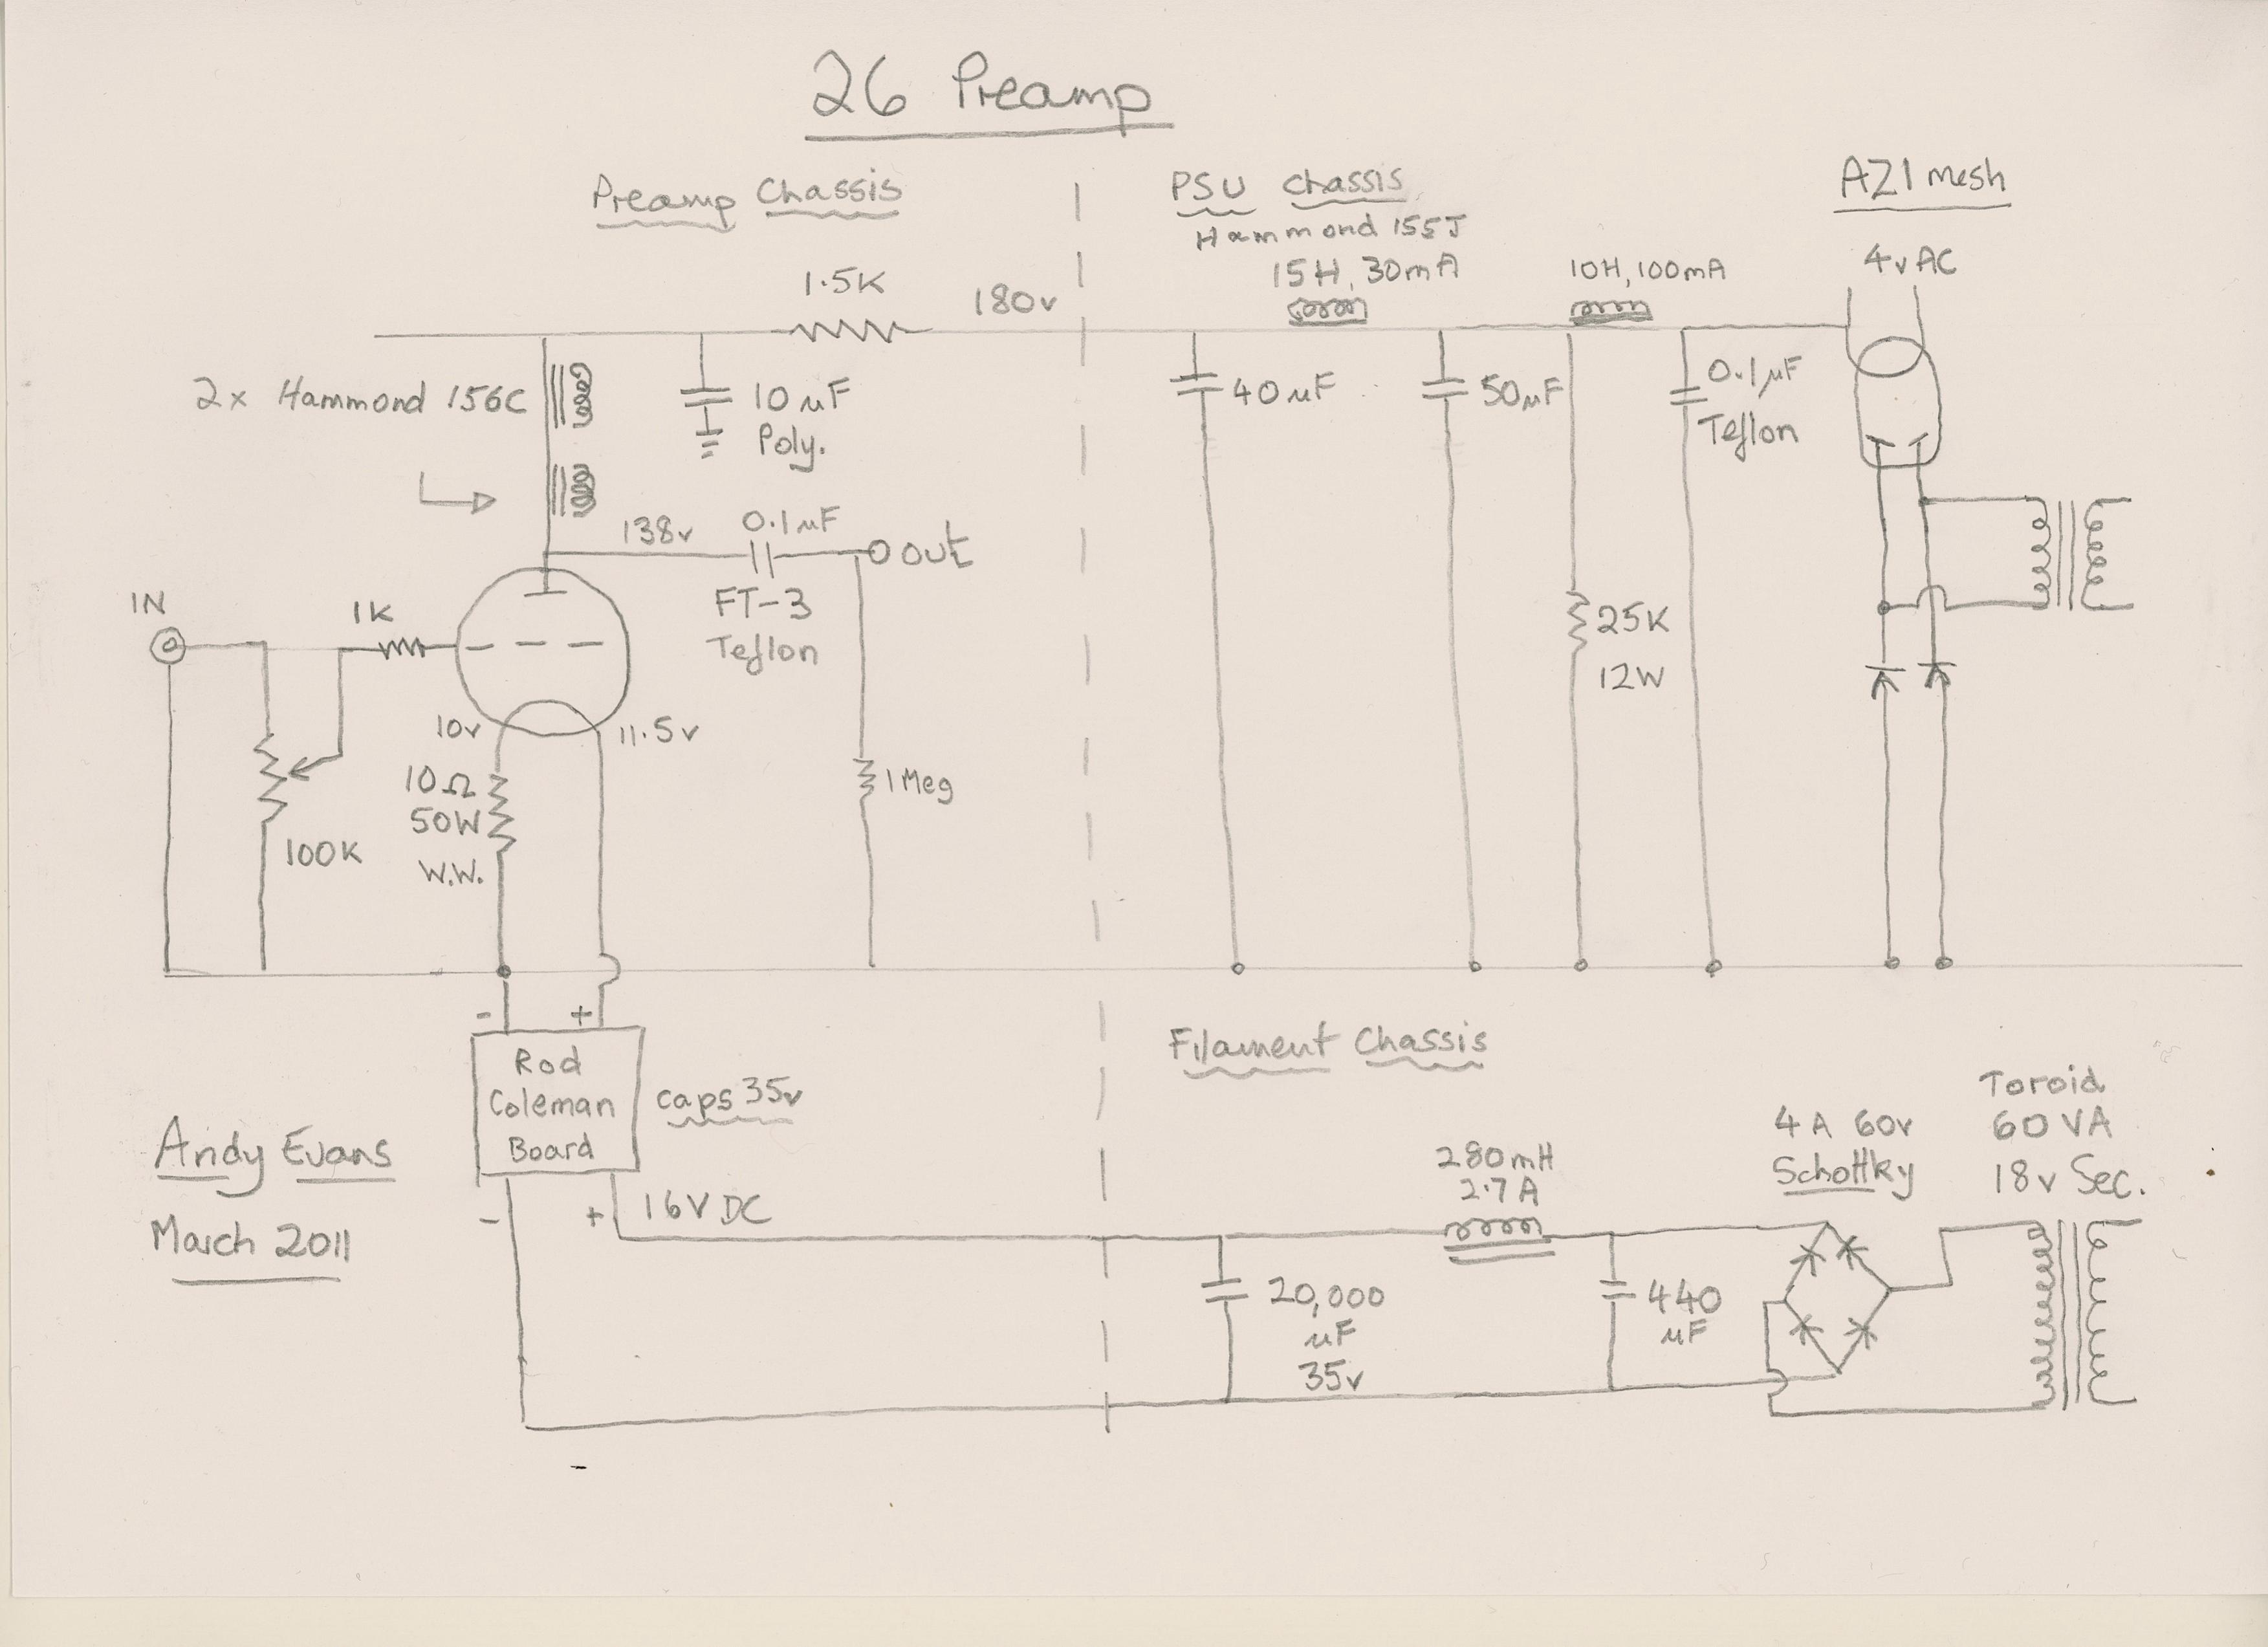 26 Preamp
Preamp Chassis
PSU Chassis
Hammond 155J
15H, 30mA
10H, 100mA
AZ1 mesh
4v AC
1.5K
180v
2x Hammond 156C
10 uF
Poly.
40 uF
50uF
0.1uF
Teflon
138v
0.1uF
out
FT-3
Teflon
IN
1K
10v
11.5v
10Ω
50W
W.W.
100K
1 Meg
25K
12W
-
+
Rod
Coleman
Board
caps 35v
-
+
16V DC
Andy Evans
March 2011
Filament Chassis
280mH
2.7A
4A 60v
Schottky
Toroid
60VA
18v Sec.
20,000
uF
35v
440
uF